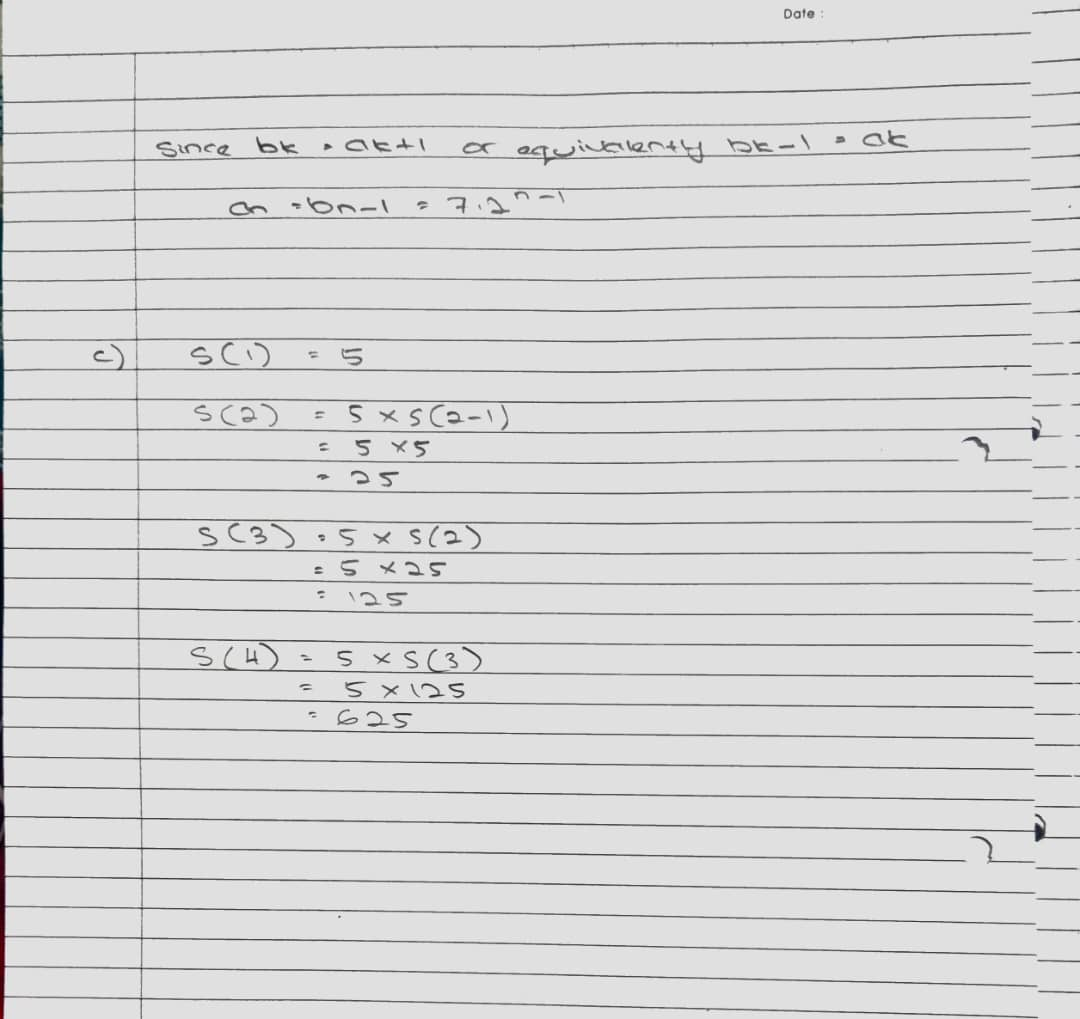 Date :
Since bk = ak+1 or equivalently bk-1 = ak
an = bn-1 = 7.2^n-1
c) S(1) = 5
S(2) = 5 × S(2-1)
= 5 × 5
= 25
S(3) = 5 × S(2)
= 5 × 25
= 125
S(4) = 5 × S(3)
= 5 × 125
= 625